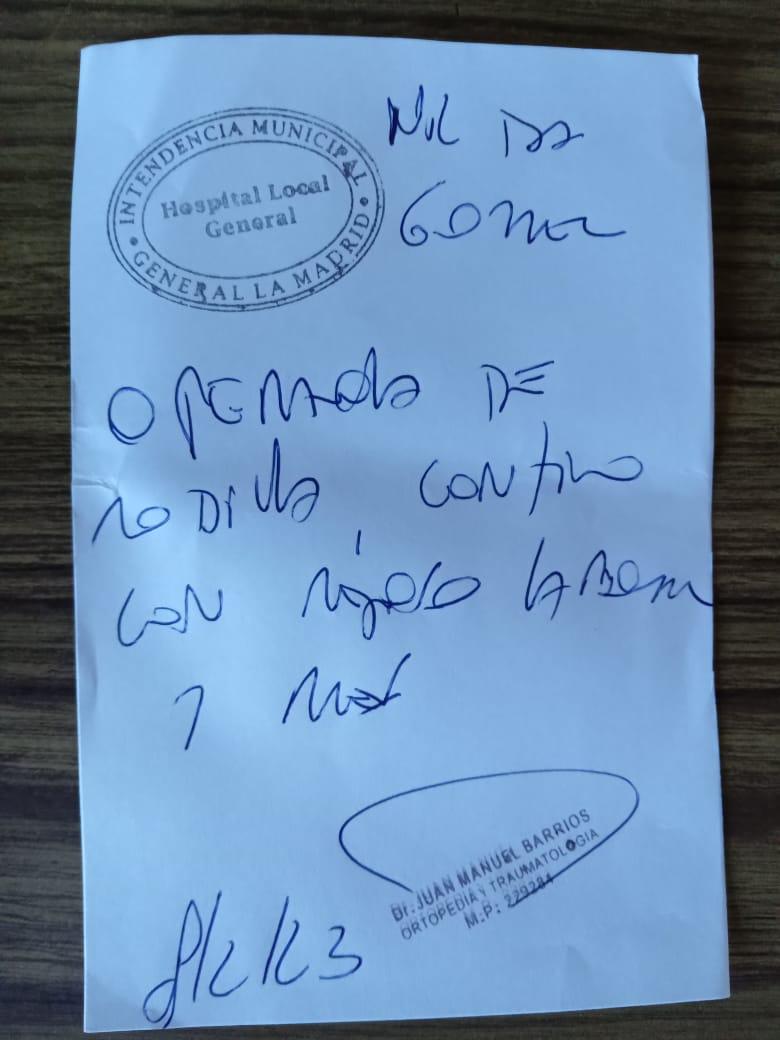 INTENDENCIA MUNICIPAL
Hospital Local
General
GENERAL LA MADRID
Nilda
GOMEZ
OPERADA DE
RODilla CONTINUA
CON reposo LABORAL
1 Mes
Dr. JUAN MANUEL BARRIOS
ORTOPEDIA Y TRAUMATOLOGIA
M.P: 229284